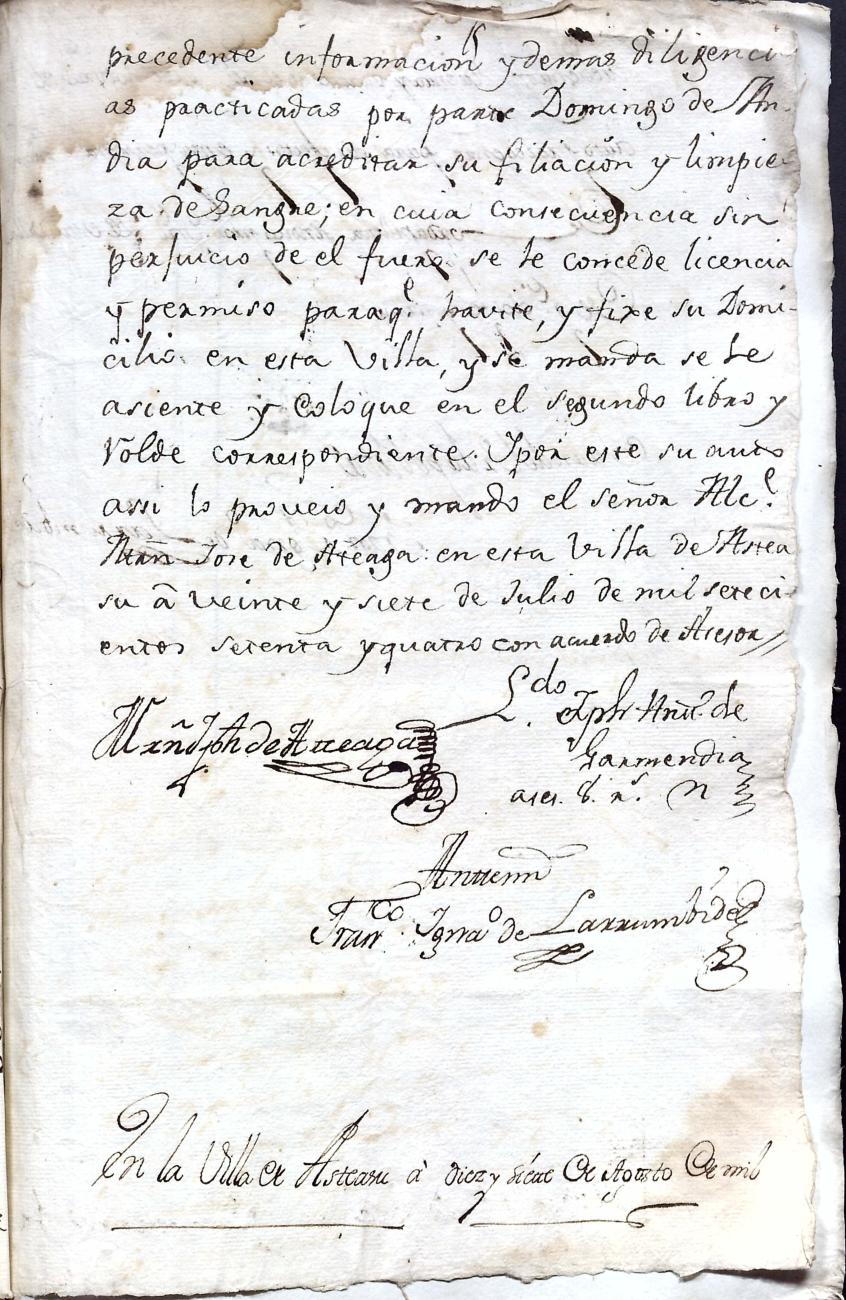 precedente informacion y demas diligenci-
as practicadas por parte Domingo de An-
dia para acreditar su filiación y limpie-
za de Sangre; en cuia consecuencia sin
perjuicio de el fuero se le concede licencia
y permiso para q.e havite, y fixe su Domi-
cilio en esta Villa, y se manda se le
asiente y Coloque en el segundo libro y
Rolde correspondiente. Ipor este su auto
assi lo proveio y mando el señor Alc.e
Mrñ Jose de Ateaga en esta Villa de Astea
su a veinte y siete de Julio de mil seteci-
entos setenta y quatro con acuerdo de Asesor
Mrñ Jph de Ateaga
L.do Jph Antt.o de
Garmendia
Antemi
Fran.co Ign.ao de Larrumbide
En la Villa de Asteasu à diez y siete de Agosto de mil